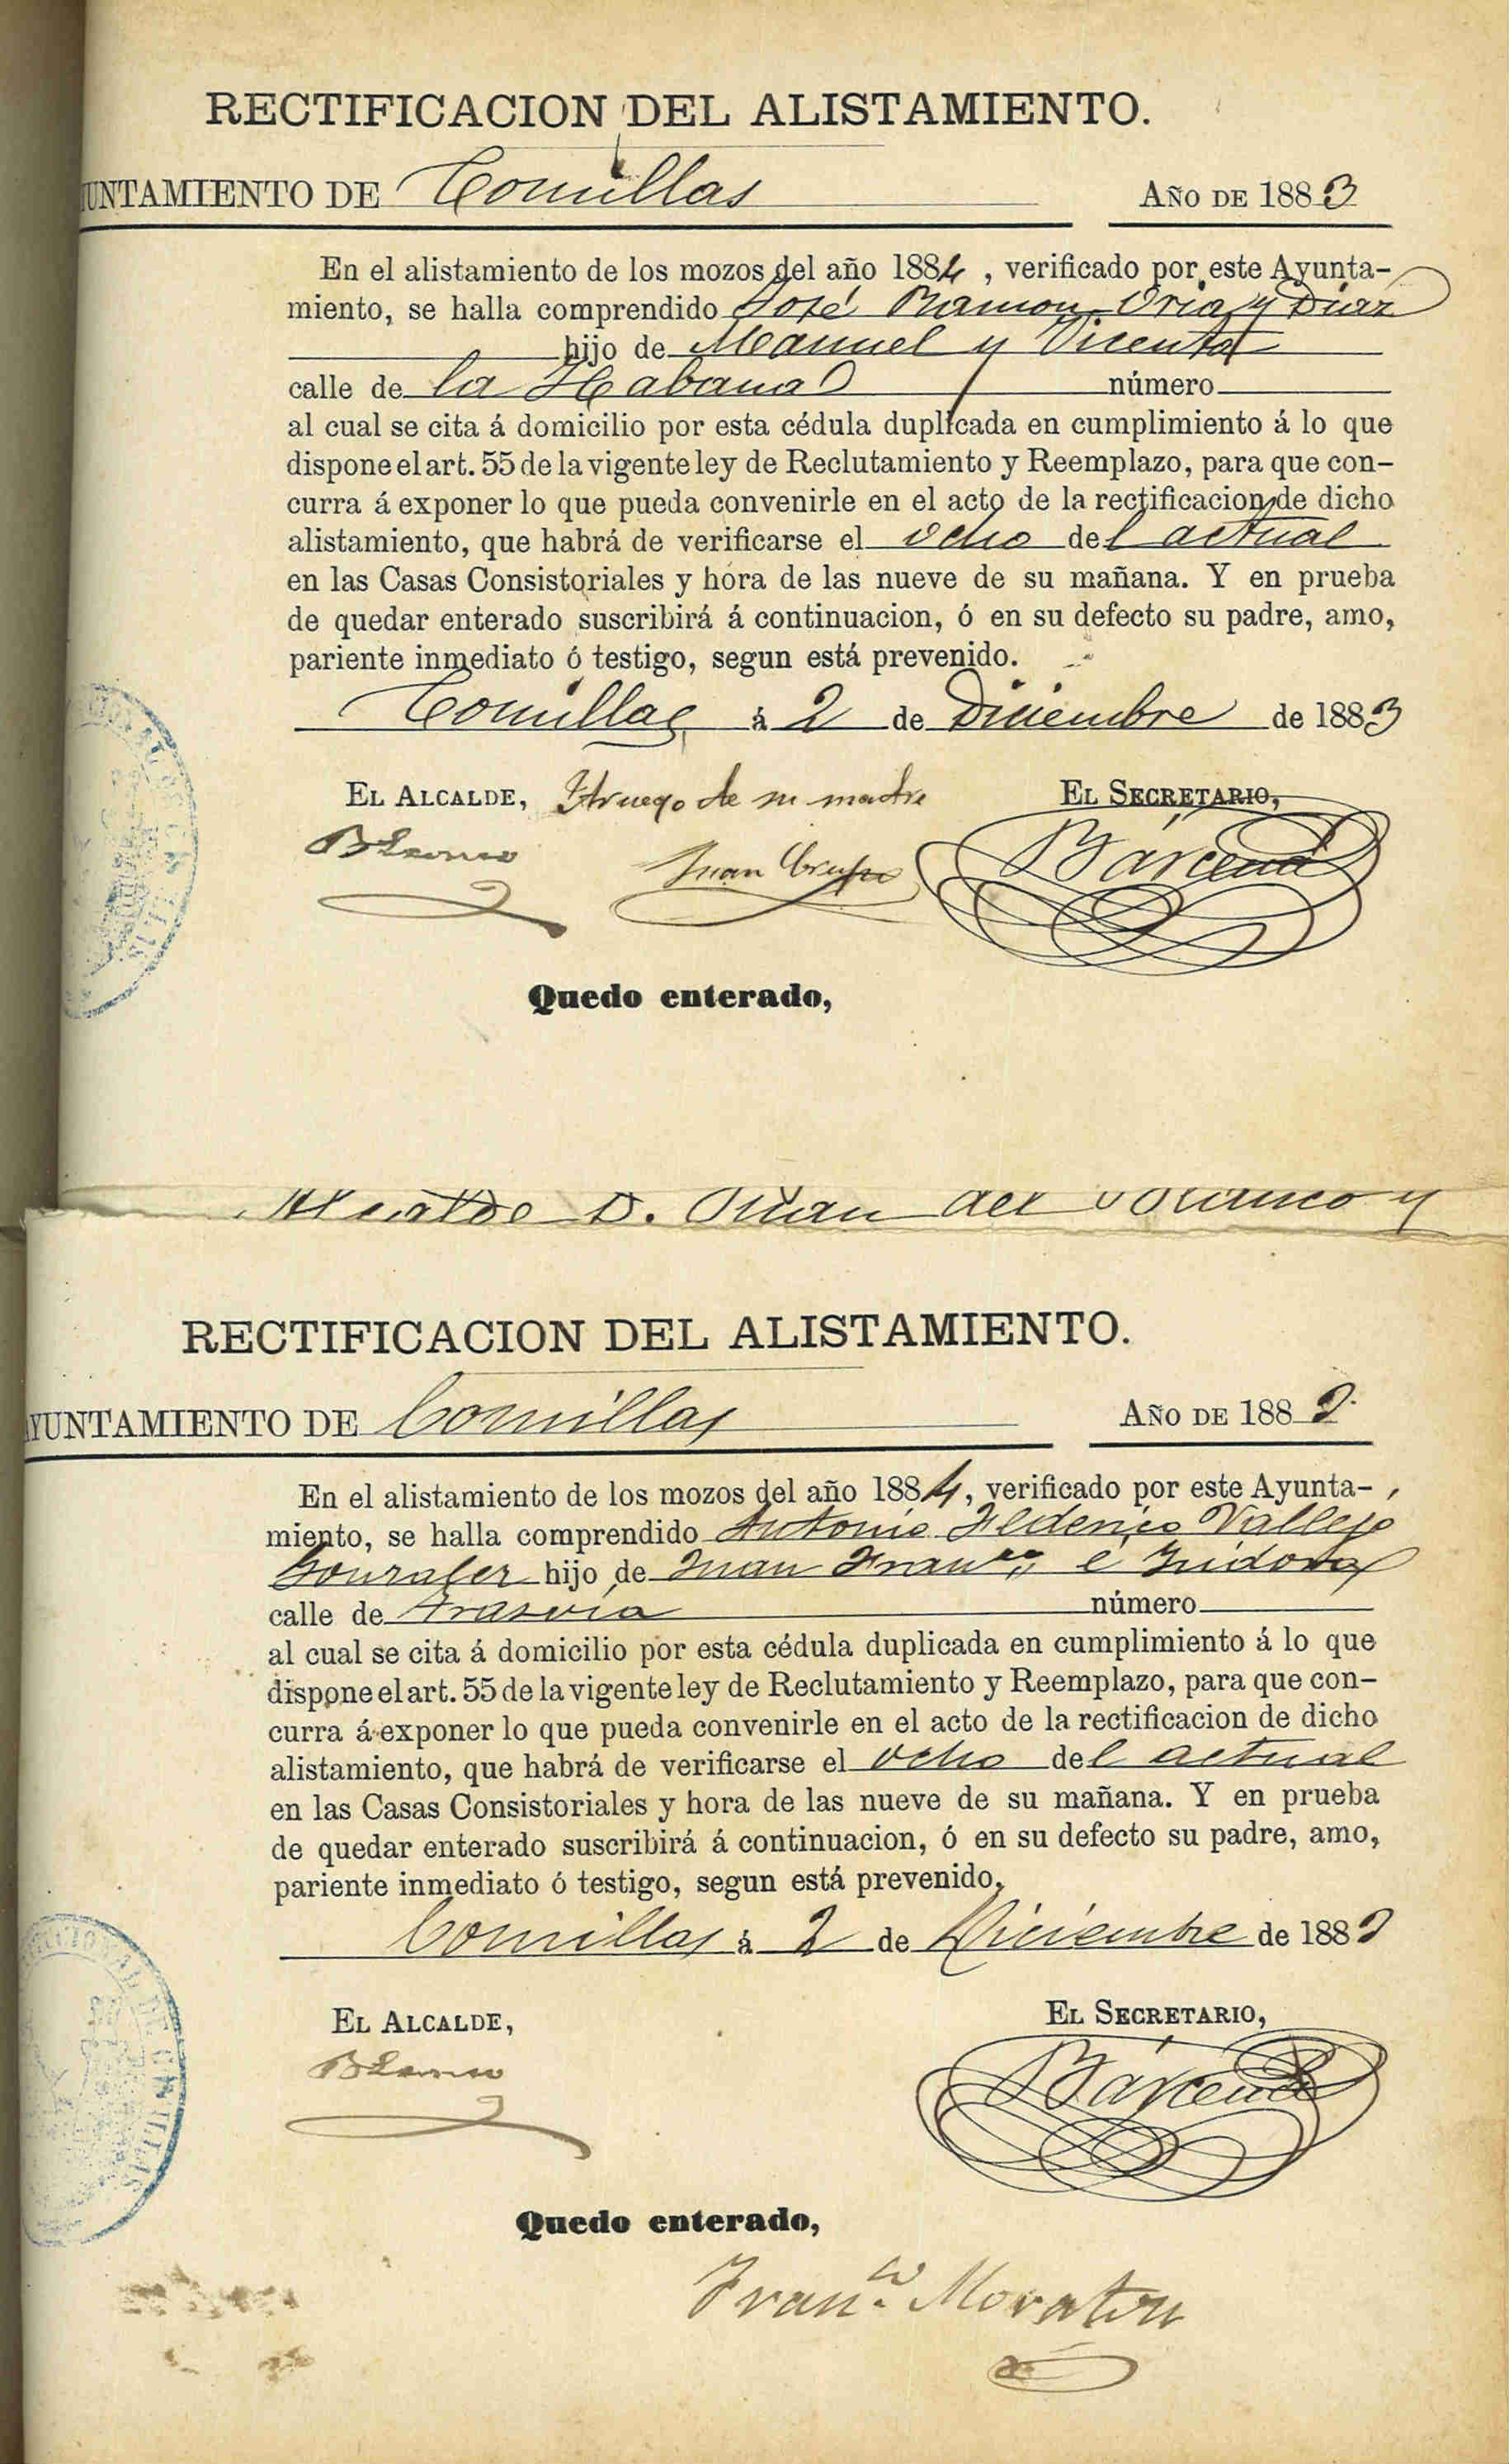 RECTIFICACION DEL ALISTAMIENTO.
YUNTAMIENTO DE Comillas AÑO DE 1883
En el alistamiento de los mozos del año 1884, verificado por este Ayunta-
miento, se halla comprendido José Ramon Oria y Diaz
hijo de Manuel y Vicenta
calle de la Habana número
al cual se cita á domicilio por esta cédula duplicada en cumplimiento á lo que
dispone el art. 55 de la vigente ley de Reclutamiento y Reemplazo, para que con-
curra á exponer lo que pueda convenirle en el acto de la rectificacion de dicho
alistamiento, que habrá de verificarse el ocho del actual
en las Casas Consistoriales y hora de las nueve de su mañana. Y en prueba
de quedar enterado suscribirá á continuacion, ó en su defecto su padre, amo,
pariente inmediato ó testigo, segun está prevenido.
Comillas á 2 de Diciembre de 1883
EL ALCALDE, A ruego de su madre EL SECRETARIO,
Blanco Juan Bárcena
Quedo enterado,
Alcalde D. Juan del Blanco y
RECTIFICACION DEL ALISTAMIENTO.
AYUNTAMIENTO DE Comillas AÑO DE 188
En el alistamiento de los mozos del año 1884, verificado por este Ayunta-
miento, se halla comprendido Antonio Vallejo
Gonzalez hijo de Juan Franco, é Isidora
calle de Trasvia número
al cual se cita á domicilio por esta cédula duplicada en cumplimiento á lo que
dispone el art. 55 de la vigente ley de Reclutamiento y Reemplazo, para que con-
curra á exponer lo que pueda convenirle en el acto de la rectificacion de dicho
alistamiento, que habrá de verificarse el ocho del actual
en las Casas Consistoriales y hora de las nueve de su mañana. Y en prueba
de quedar enterado suscribirá á continuacion, ó en su defecto su padre, amo,
pariente inmediato ó testigo, segun está prevenido.
Comillas á 2 de Diciembre de 188
EL ALCALDE, EL SECRETARIO,
Blanco Bárcena
Quedo enterado,
Franco. Moraton